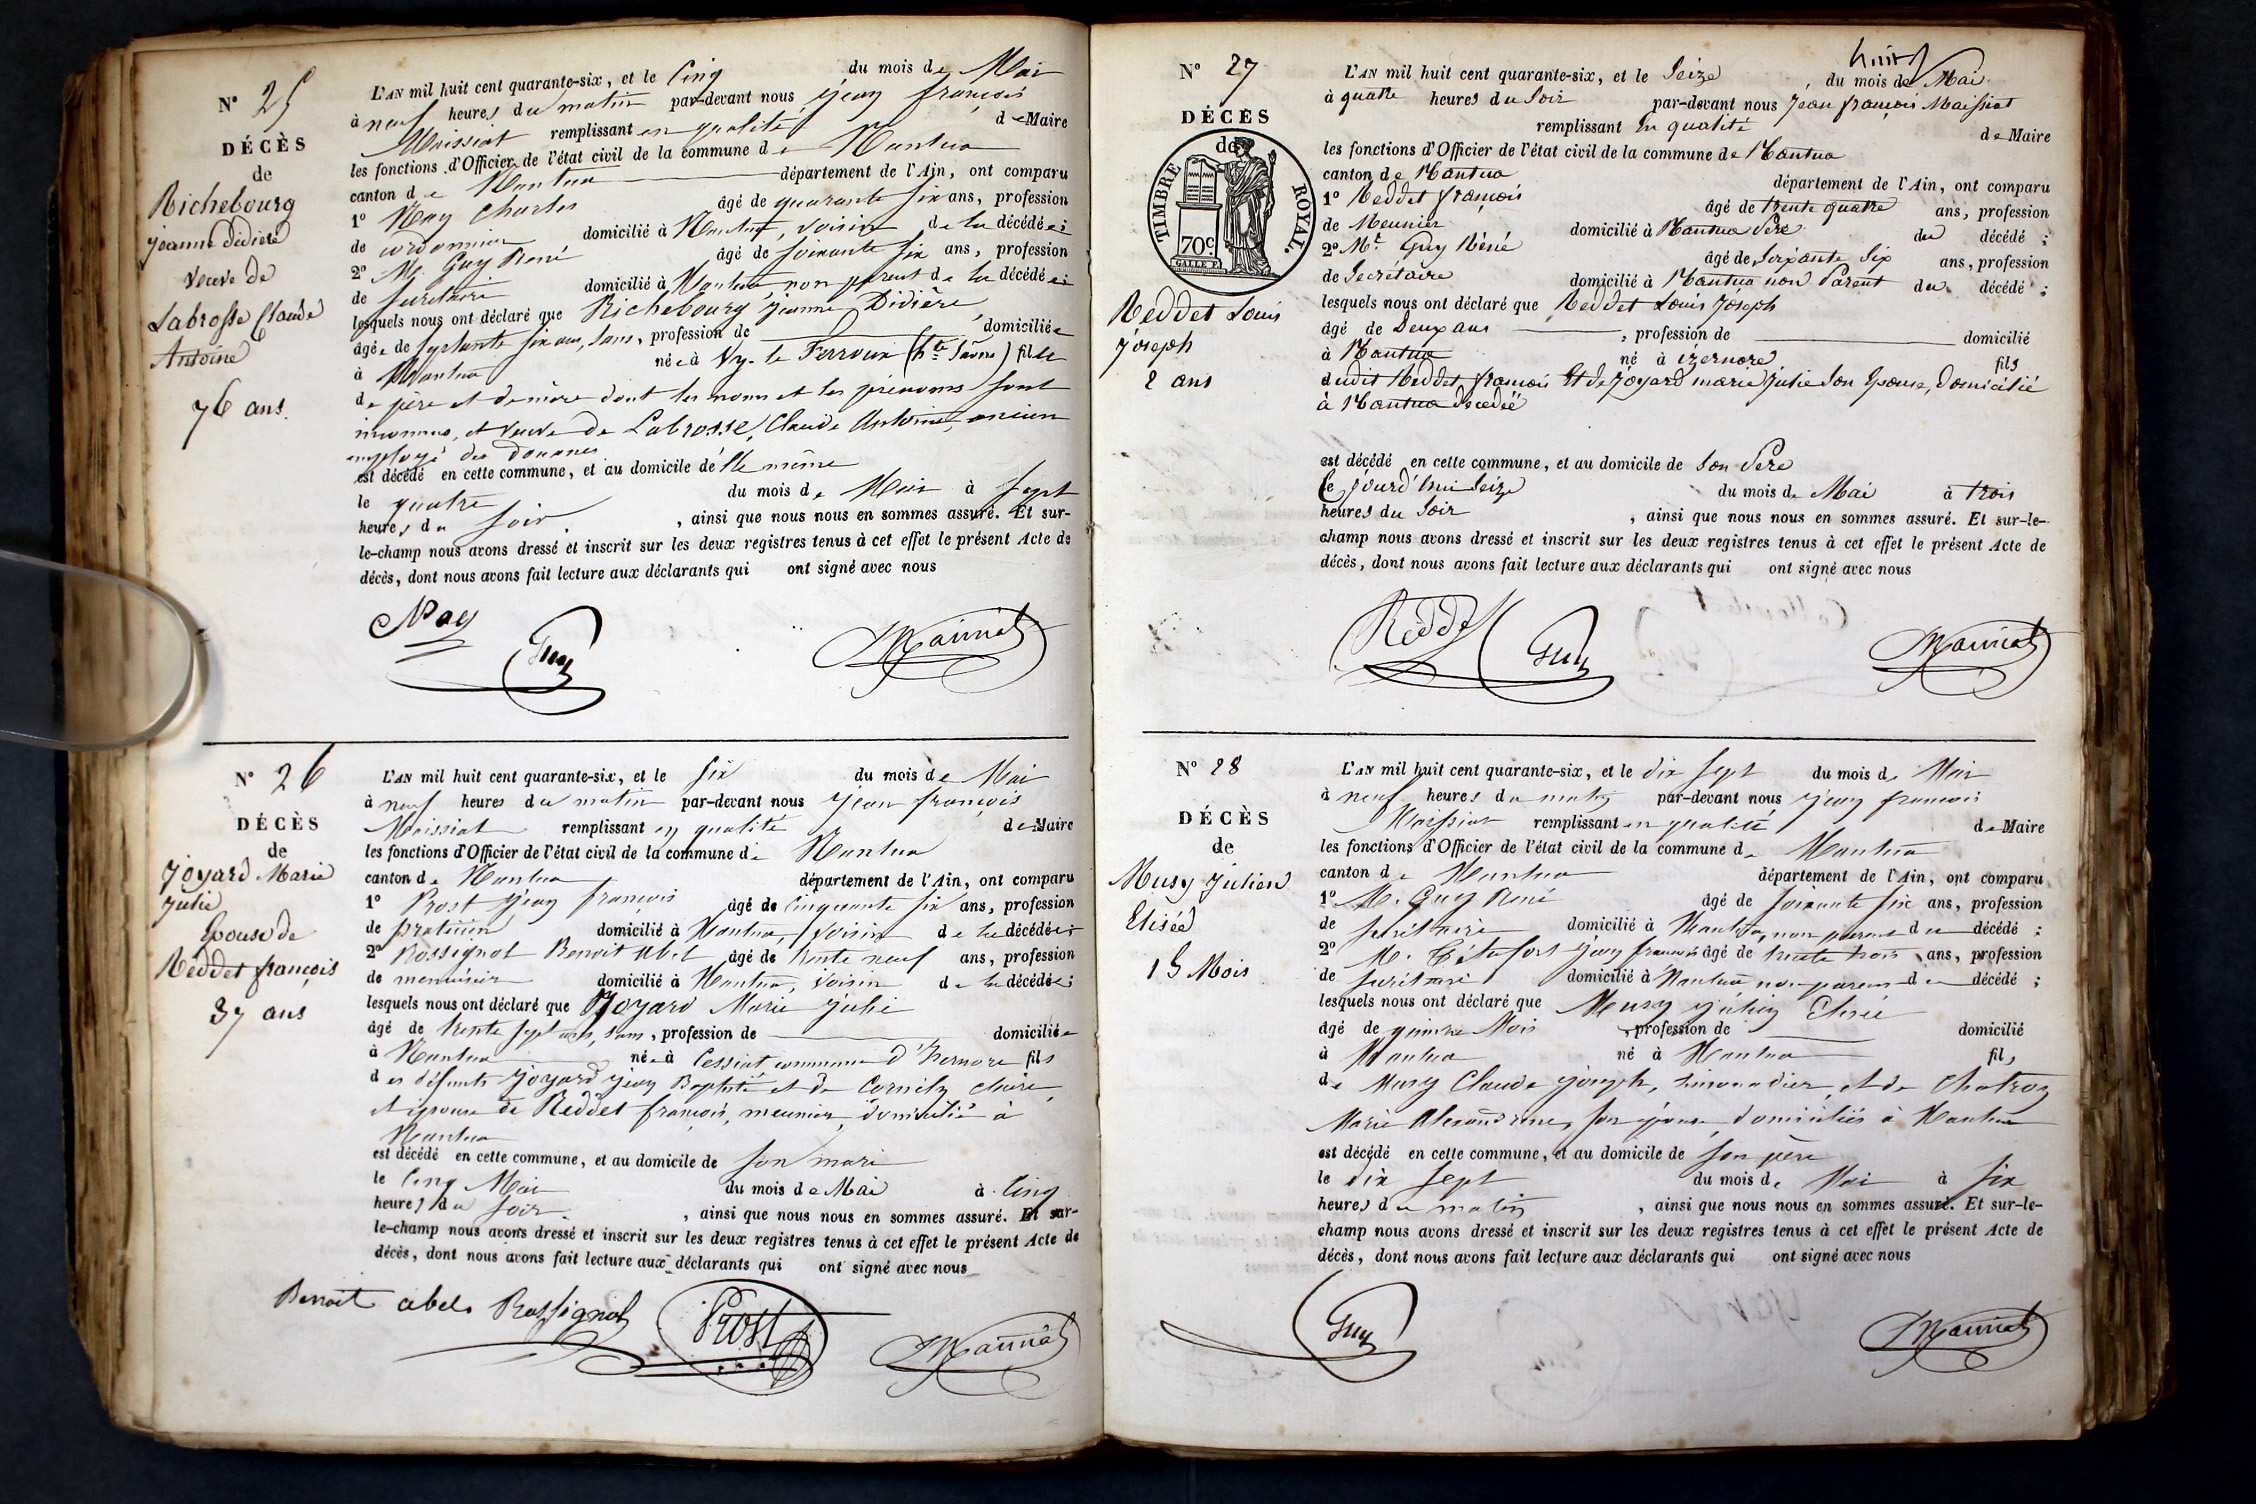 N° 25
DÉCÈS
de
Richebourg
jeanne didière
veuve de
Labrosse Claude
Antoine
76 ans.
L'AN mil huit cent quarante-six, et le Cinq du mois de Mai
à neuf heures du matin par-devant nous jean françois
Maissiat remplissant en qualité de Maire
les fonctions d'Officier de l'état civil de la commune de Nantua
canton de Nantua département de l'Ain, ont comparu
1° Nay Charles âgé de quarante six ans, profession
de cordonnier domicilié à Nantua, voisin de la décédée;
2° Mr. Guy René âgé de soixante six ans, profession
de secrétaire domicilié à Nantua non parent de la décédée;
lesquels nous ont déclaré que Richebourg jeanne Didière
âgée de septante six ans, sans, profession de domiciliée
à Nantua née à Vy-le Ferroux (hte. Saône) fille
de père et de mère dont les noms et les prénoms sont
inconnus, et veuve de Labrosse, Claude Antoine, ancien
employé des douanes
est décédé en cette commune, et au domicile d'elle même
le quatre du mois de Mai à sept
heures du soir. , ainsi que nous nous en sommes assuré. Et sur-
le-champ nous avons dressé et inscrit sur les deux registres tenus à cet effet le présent Acte de
décès, dont nous avons fait lecture aux déclarants qui ont signé avec nous
Nay
Guy
Maissiat
N° 26
DÉCÈS
de
Joyard Marie
Julie
Epouse de
Reddet françois
37 ans
L'AN mil huit cent quarante-six, et le six du mois de Mai
à neuf heures du matin par-devant nous jean françois
Maissiat remplissant en qualité de Maire
les fonctions d'Officier de l'état civil de la commune de Nantua
canton de Nantua département de l'Ain, ont comparu
1° Prost jean françois âgé de cinquante six ans, profession
de praticien domicilié à Nantua, voisin de la décédée;
2° Rossignol Benoit Abel âgé de trente neuf ans, profession
de menuisier domicilié à Nantua, voisin de la décédée;
lesquels nous ont déclaré que Joyard Marie julie
âgé de trente sept ans, sans, profession de domiciliée
à Nantua née à Cessiat commune d'Izernore fils
des défunts Joyard jean Baptiste et de Cornély claire,
et épouse de Reddet françois, meunier, domicilié à
Nantua
est décédé en cette commune, et au domicile de son mari
le cinq Mai du mois de Mai à cinq
heures du soir. , ainsi que nous nous en sommes assuré. Et sur-
le-champ nous avons dressé et inscrit sur les deux registres tenus à cet effet le présent Acte de
décès, dont nous avons fait lecture aux déclarants qui ont signé avec nous
Benoit abel Rossignol
Prost
Maissiat
N° 27
DÉCÈS
de
TIMBRE ROYAL.
70c
Reddet Louis
Joseph
2 ans
huit
L'AN mil huit cent quarante-six, et le Seize du mois de Mai
à quatre heures du Soir par-devant nous Jean françois Maissiat
remplissant En qualité de Maire
les fonctions d'Officier de l'état civil de la commune de Nantua
canton de Nantua département de l'Ain, ont comparu
1° Reddet françois âgé de trente quatre ans, profession
de Meunier domicilié à Nantua Père du décédé;
2° Mr. Guy Réné âgé de Soixante Six ans, profession
de Secrétaire domicilié à Nantua non Parent du décédé;
lesquels nous ont déclaré que Reddet Louis Joseph
âgé de Deux ans , profession de domicilié
à Nantua né à izernore fils
dudit Reddet françois Et de Joyard marie julie Son Epouse, domicilié
à Nantua décédée
est décédé en cette commune, et au domicile de Son Père
le jourd'hui Seize du mois de Mai à trois
heures du Soir , ainsi que nous nous en sommes assuré. Et sur-le-
champ nous avons dressé et inscrit sur les deux registres tenus à cet effet le présent Acte de
décès, dont nous avons fait lecture aux déclarants qui ont signé avec nous
Reddet
Guy
Maissiat
N° 28
DÉCÈS
de
Musy Julien
Elisée
15 Mois
L'AN mil huit cent quarante-six, et le dix sept du mois de Mai
à neuf heures du matin par-devant nous jean françois
Maissiat remplissant en qualité de Maire
les fonctions d'Officier de l'état civil de la commune de Nantua
canton de Nantua département de l'Ain, ont comparu
1° M. Guy René âgé de soixante six ans, profession
de secrétaire domicilié à Nantua, non parent du décédé;
2° M. jean françois âgé de trente trois ans, profession
de secrétaire domicilié à Nantua non parent du décédé;
lesquels nous ont déclaré que Musy julien Elisée
âgé de quinze Mois , profession de domicilié
à Nantua né à Nantua fils
de Musy Claude joseph, limonadier, et de Chatron
Marie Alexandrine, son épouse, domiciliés à Nantua
est décédé en cette commune, et au domicile de son père
le dix sept du mois de Mai à six
heures du matin , ainsi que nous nous en sommes assuré. Et sur-le-
champ nous avons dressé et inscrit sur les deux registres tenus à cet effet le présent Acte de
décès, dont nous avons fait lecture aux déclarants qui ont signé avec nous
Guy
Maissiat